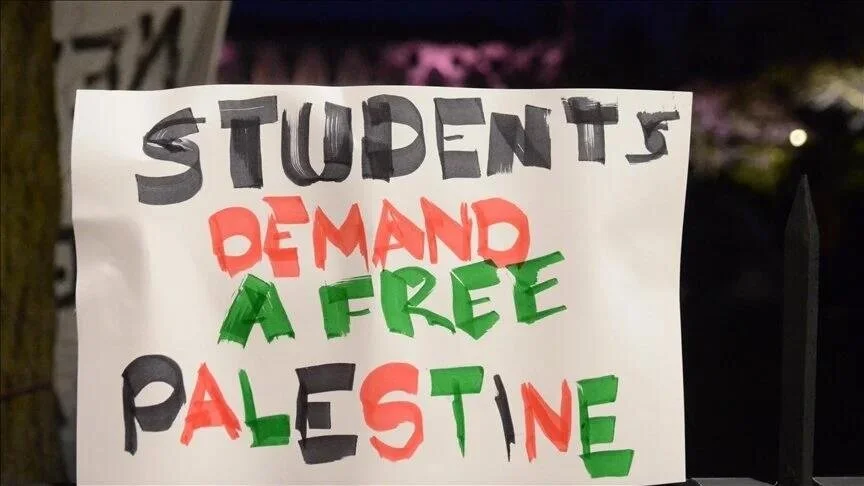 STUDENTS
DEMAND
A FREE
PALESTINE